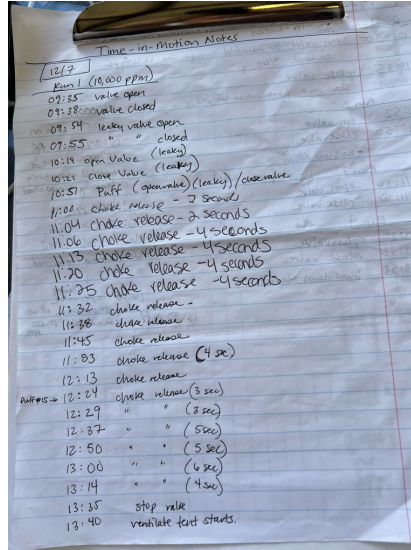 Time-in-Motion Notes
12/7
Run 1 (10,000 ppm)
09:35 valve open
09:38 valve closed
09:54 leaky valve open
09:55 " " closed
10:19 open Valve (leaky)
10:21 Close Valve (leaky)
10:51 Puff (openvalve)(leaky)/closevalve
11:00 choke release - 2 seconds
11:04 choke release - 2 seconds
11:06 choke release - 4 seconds
11:13 choke release - 4 seconds
11:20 choke release - 4 seconds
11:25 choke release - 4 seconds
11:32 choke release -
11:38 choke release
11:45 choke release
11:53 choke release (4 sec)
12:13 choke release
Puff #15 → 12:24 choke release (3 sec)
12:29 " " (3 sec)
12:37 " " (5 sec)
12:50 " " (5 sec)
13:00 " " (6 sec)
13:14 " " (4 sec)
13:35 stop valve
13:40 ventilate tent starts.